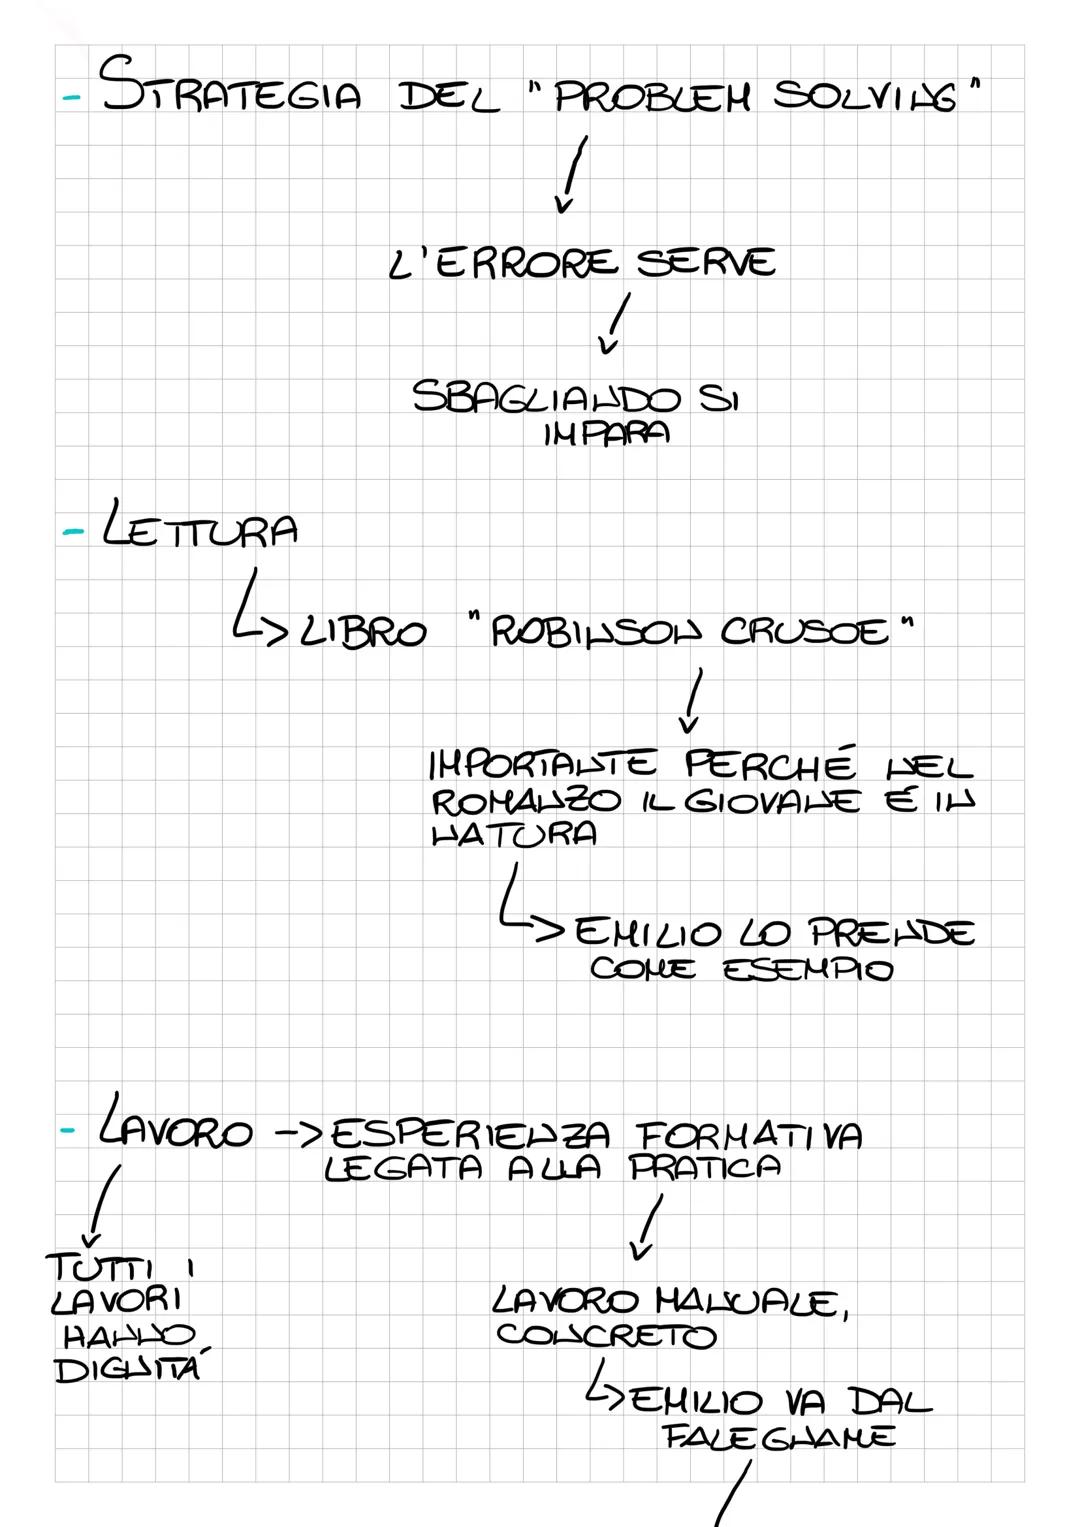 - STRATEGIA DEL "PROBLEM SOLVING"
L'ERRORE SERVE
SBAGLIANDO SI
IMPARA
- LETTURA
LIBRO "ROBINSON CRUSOE"
IMPORTANTE PERCHÉ NEL
ROMANZO IL GIOVANE É IN
NATURA
EMILIO LO PRENDE
COME ESEMPIO
- LAVORO -> ESPERIENZA FORMATIVA
LEGATA ALLA PRATICA
TUTTI I
LAVORI
HANNO
DIGNITÁ
LAVORO MANUALE,
CONCRETO
EMILIO VA DAL
FALEGNAME